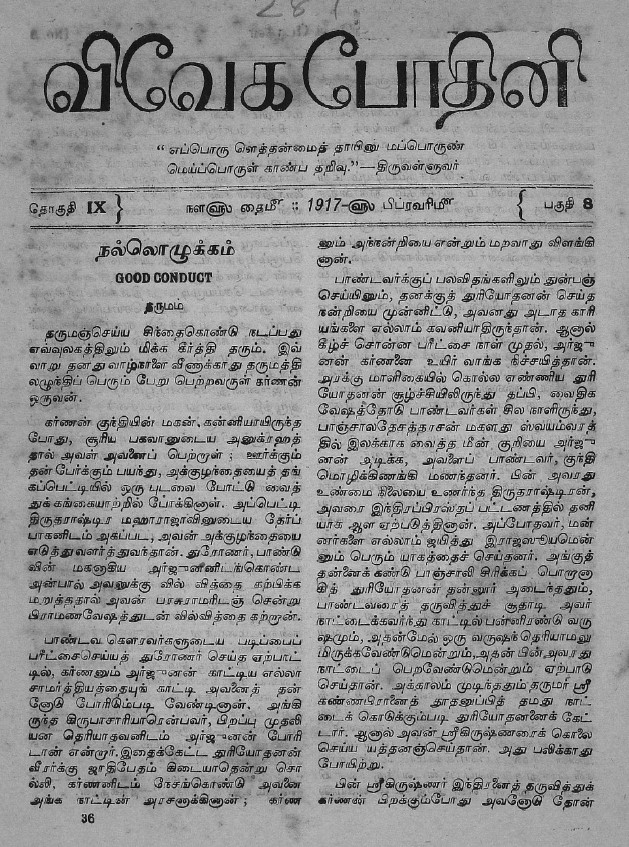 281
விவேக போதினி
“ எப்பொரு ளெத்தன்மைத் தாயினு மப்பொருண்
மெய்ப்பொருள் காண்ப தறிவு.”—திருவள்ளுவர்
தொகுதி IX }
நள௵ தை௴ :: 1917-௵ பிப்ரவரி௴
{ பகுதி 8
நல்லொழுக்கம்
GOOD CONDUCT
தருமம்
தருமஞ்செய்ய சிந்தைகொண்டு நடப்பது
எவ்வுலகத்திலும் மிக்க கீர்த்தி தரும். இவ்
வாறு தனது வாழ்நாளை வீணாக்காது தருமத்தி
லழுந்திப் பெரும் பேறு பெற்றவருள் கர்ணன்
ஒருவன்.
கர்ணன் குந்தியின் மகன். கன்னியாயிருந்த
போது, சூரிய பகவானுடைய அனுக்ரஹத்
தால் அவள் அவனைப் பெற்றாள் ; ஊர்க்கும்
தன் பேர்க்கும் பயந்து, அக்குழந்தையைத் தங்
கப்பெட்டியில் ஒரு புடவை போட்டு வைத்
துக் கங்கையாற்றில் போக்கினாள். அப்பெட்டி
திருதராஷ்டிர மஹாராஜாவினுடைய தேர்ப்
பாகனிடம் அகப்பட, அவன் அக்குழந்தையை
எடுத்து வளர்த்துவந்தான். துரோணர், பாண்டு
வின் மகனாகிய அர்ஜுனனிடங்கொண்ட
அன்பால் அவனுக்கு வில் வித்தை கற்பிக்க
மறுத்ததால் அவன் பரசுராமரிடஞ் சென்று
பிராமணவேஷத்துடன் வில்வித்தை கற்றான்.
பாண்டவ கௌரவர்களுடைய படிப்பைப்
பரீட்சைசெய்யத் துரோணர் செய்த ஏற்பாட்
டில், கர்ணனும் அர்ஜுனன் காட்டிய எல்லா
சாமர்த்தியத்தையுங் காட்டி அவனைத் தன்
னோடு போரிடும்படி வேண்டினான். அங்கி
ருந்த கிருபாசாரியாரென்பவர், பிறப்பு முதலி
யன தெரியாதவனிடம் அர்ஜுனன் போரி
டான் என்றார். இதைக்கேட்ட துரியோதனன்
வீரர்க்கு ஜாதிபேதம் கிடையாதென்று சொ
ல்லி, கர்ணனிடம் நேசங்கொண்டு அவனை
அங்க நாட்டின் அரசனாக்கினான் ; கர்ண
36
னும் அந்நன்றியை என்றும் மறவாது விளங்கி
னான்.
பாண்டவர்க்குப் பலவிதங்களிலும் துன்பஞ்
செய்யினும், தனக்குத் துரியோதனன் செய்த
நன்றியை முன்னிட்டு, அவனது அடாத காரி
யங்களை எல்லாம் கவனியாதிருந்தான். ஆனால்
கீழ்ச் சொன்ன பரீட்சை நாள் முதல், அர்ஜு
னன் கர்ணனை உயிர் வாங்க நிச்சயித்தான்.
அரக்கு மாளிகையில் கொல்ல எண்ணிய துரி
யோதனன் சூழ்ச்சியிலிருந்து தப்பி, வைதிக
வேஷத்தோடு பாண்டவர்கள் சில நாளிருந்து,
பாஞ்சாலதேசத்தரசன் மகளது ஸ்வயம்வரத்
தில் இலக்காக வைத்த மீன் குறியை அர்ஜு
னன் அடிக்க, அவளைப் பாண்டவர், குந்தி
மொழிக்கிணங்கி மணந்தனர். பின் அவரது
உண்மை நிலையை உணர்ந்த திருதராஷ்டிரன்,
அவரை இந்திரப்பிரஸ்தப் பட்டணத்தில் தனி
யாக ஆள ஏற்படுத்தினான். அப்போதவர், மன்
னர்களை எல்லாம் ஜயித்து இராஜஸூயமென்
னும் பெரும் யாகத்தைச் செய்தனர். அங்குத்
தன்னைக் கண்டு பாஞ்சாலி சிரிக்கப் பொறா
கித் துரியோதனன் தன்னூர் அடைந்ததும்,
பாண்டவரைத் தருவித்துச் சூதாடி, அவர்
நாட்டைக்கவர்ந்து காட்டில் பன்னிரண்டு வரு
ஷமும், அதன்மேல் ஒரு வருஷந் தெரியாமலு
மிருக்கவேண்டுமென்றும், அதன் பின், அவரது
நாட்டைப் பெறவேண்டுமென்றும் ஏற்பாடு
செய்தான். அக்காலம் முடிந்ததும் தருமர் ஸ்ரீ
கண்ணபிரானைத் தூதனுப்பித் தமது நாட்
டைக் கொடுக்கும்படி துரியோதனனைக் கேட்
டார். ஆனால் அவன் ஸ்ரீகிருஷ்ணரைக் கொலை
செய்ய யத்தனஞ்செய்தான். அது பலிக்காது
போயிற்று.
பின் ஸ்ரீகிருஷ்ணர் இந்திரனைத் தருவித்துக்
கர்ணன் பிறக்கும்போது அவனோடு தோன்